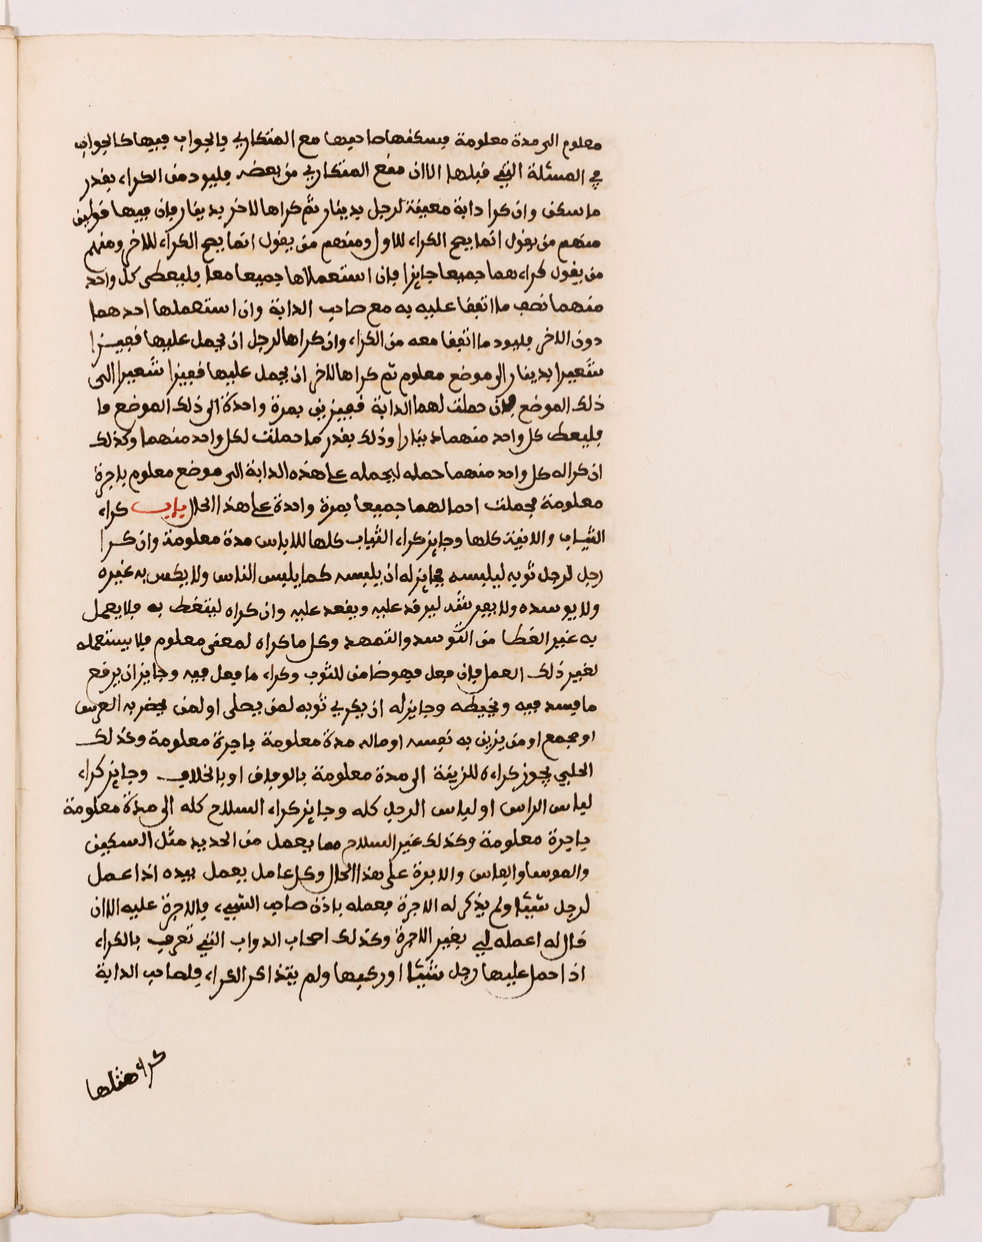 معلوم الى مدة معلومة فيسكنها صاحبها مع المتكاري فالجواب فيها كالجواب
في المسئلة التي قبلها الا ان منع المتكاري من بعضه فليرد من الكراء بقدر
ما سكن وان كرا دابة معينة لرجل بدينار ثم كراها لاخر بدينار فان فيها قولين
منهم من يقول انما يصح الكراء للاول ومنهم من يقول انما يصح الكراء للاخر ومنهم
من يقول كراءهما جميعا جايزا فان استعملاها جميعا معا فليعطى كل واحد
منهما نصف ما اتفقا عليه به مع صاحب الدابة وان استعملها احدهما
دون الاخر فليرد ما اتفقا معه من الكراء وان كراها لرجل ان يحمل عليها قفيزا
شعيرا بدينار الى موضع معلوم ثم كراها لاخر ان يحمل عليها قفيزا شعيرا الى
ذلك الموضع فان حملت لهما الدابة قفيزين بمرة واحدة الى ذلك الموضع فا
فليعط كل واحد منهما دينارا وذلك بقدر ما حملت لكل واحد منهما وكذلك
ان كرا له كل واحد منهما حمله ليحمله على هذه الدابة الى موضع معلوم باجرة
معلومة فحملت احمالهما جميعا بمرة واحدة على هذا الحال باب كراء
الثياب والانية كلها وجايز كراء الثياب كلها للابس مدة معلومة وان كرا
رجل لرجل ثوبه ليلبسه فجايز له ان يلبسه كما يلبس الناس ولا يكس به غيره
ولا يوسده ولا يفرشه ليرقد عليه ويقعد عليه وان كراه ليتغط به فلا يعمل
به غير الغطا من التوسد والتمهد وكل ما كراه لمعنى معلوم فلا يستعمله
لغير ذلك العمل فان فعل فهو ضامن للثوب وكراء ما فعل فيه وجايز ان يرفع
ما فسد فيه ويخيطه وجايز له ان يكري ثوبه لمن يحلى او لمن يحضر به العرس
او مجمع او من يزين به نفسه او ماله مدة معلومة باجرة معلومة وكذلك
الحلي يجوز كراءه للزينة الى مدة معلومة بالوفاق او بالخلاف وجايز كراء
لباس الراس او لباس الرجل كله وجايز كراء السلاح كله الى مدة معلومة
باجرة معلومة وكذلك غير السلاح مما يعمل من الحديد مثل السكين
والموسا والفاس والابرة على هذا الحال وكل عامل يعمل بيده اذا عمل
لرجل شيئا ولم يذكر له الاجرة فعمله باذن صاحب الشيء فالاجرة عليه الا ان
قال له اعمله لي بغير الاجرة وكذلك اصحاب الدواب التي تعرف بالكراء
اذا حمل عليها رجل شيئا او ركبها ولم يتذاكر الكراء فلصاحب الدابة
كراء مثلها